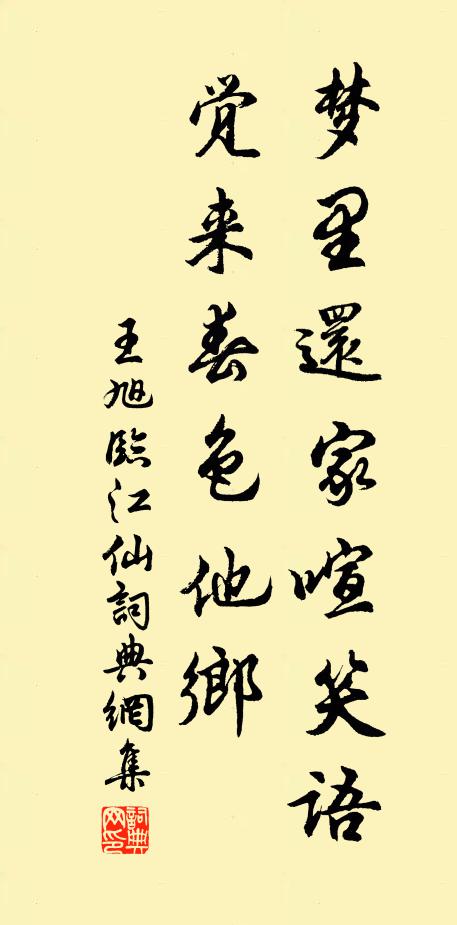 梦里還家喧笑語
覚来春色他鄉
王旭臨江仙詞典網集
詞典網印